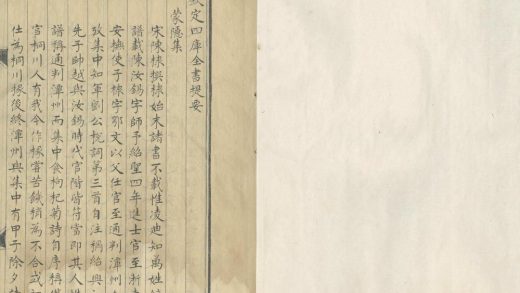 欽定四庫全書提要
蒙隱集
宋陳棣撰棣始末諸書不載惟凌迪知萬姓統
譜載陳汝錫字師予紹聖四年進士官至浙東
安撫使子棣字鄂文以父仕官至通判潭州今
攷集中知軍劉公挽詞第三首自注稱紹興
先子帥越與汝錫時代官階皆符當即其人
譜稱通判潭州而集中食枸杞菊詩自序稱僕
官桐川人有我今作掾嘗苦餓稍為不合或初
仕為桐川掾後終潭州與集中有甲子除夕詩